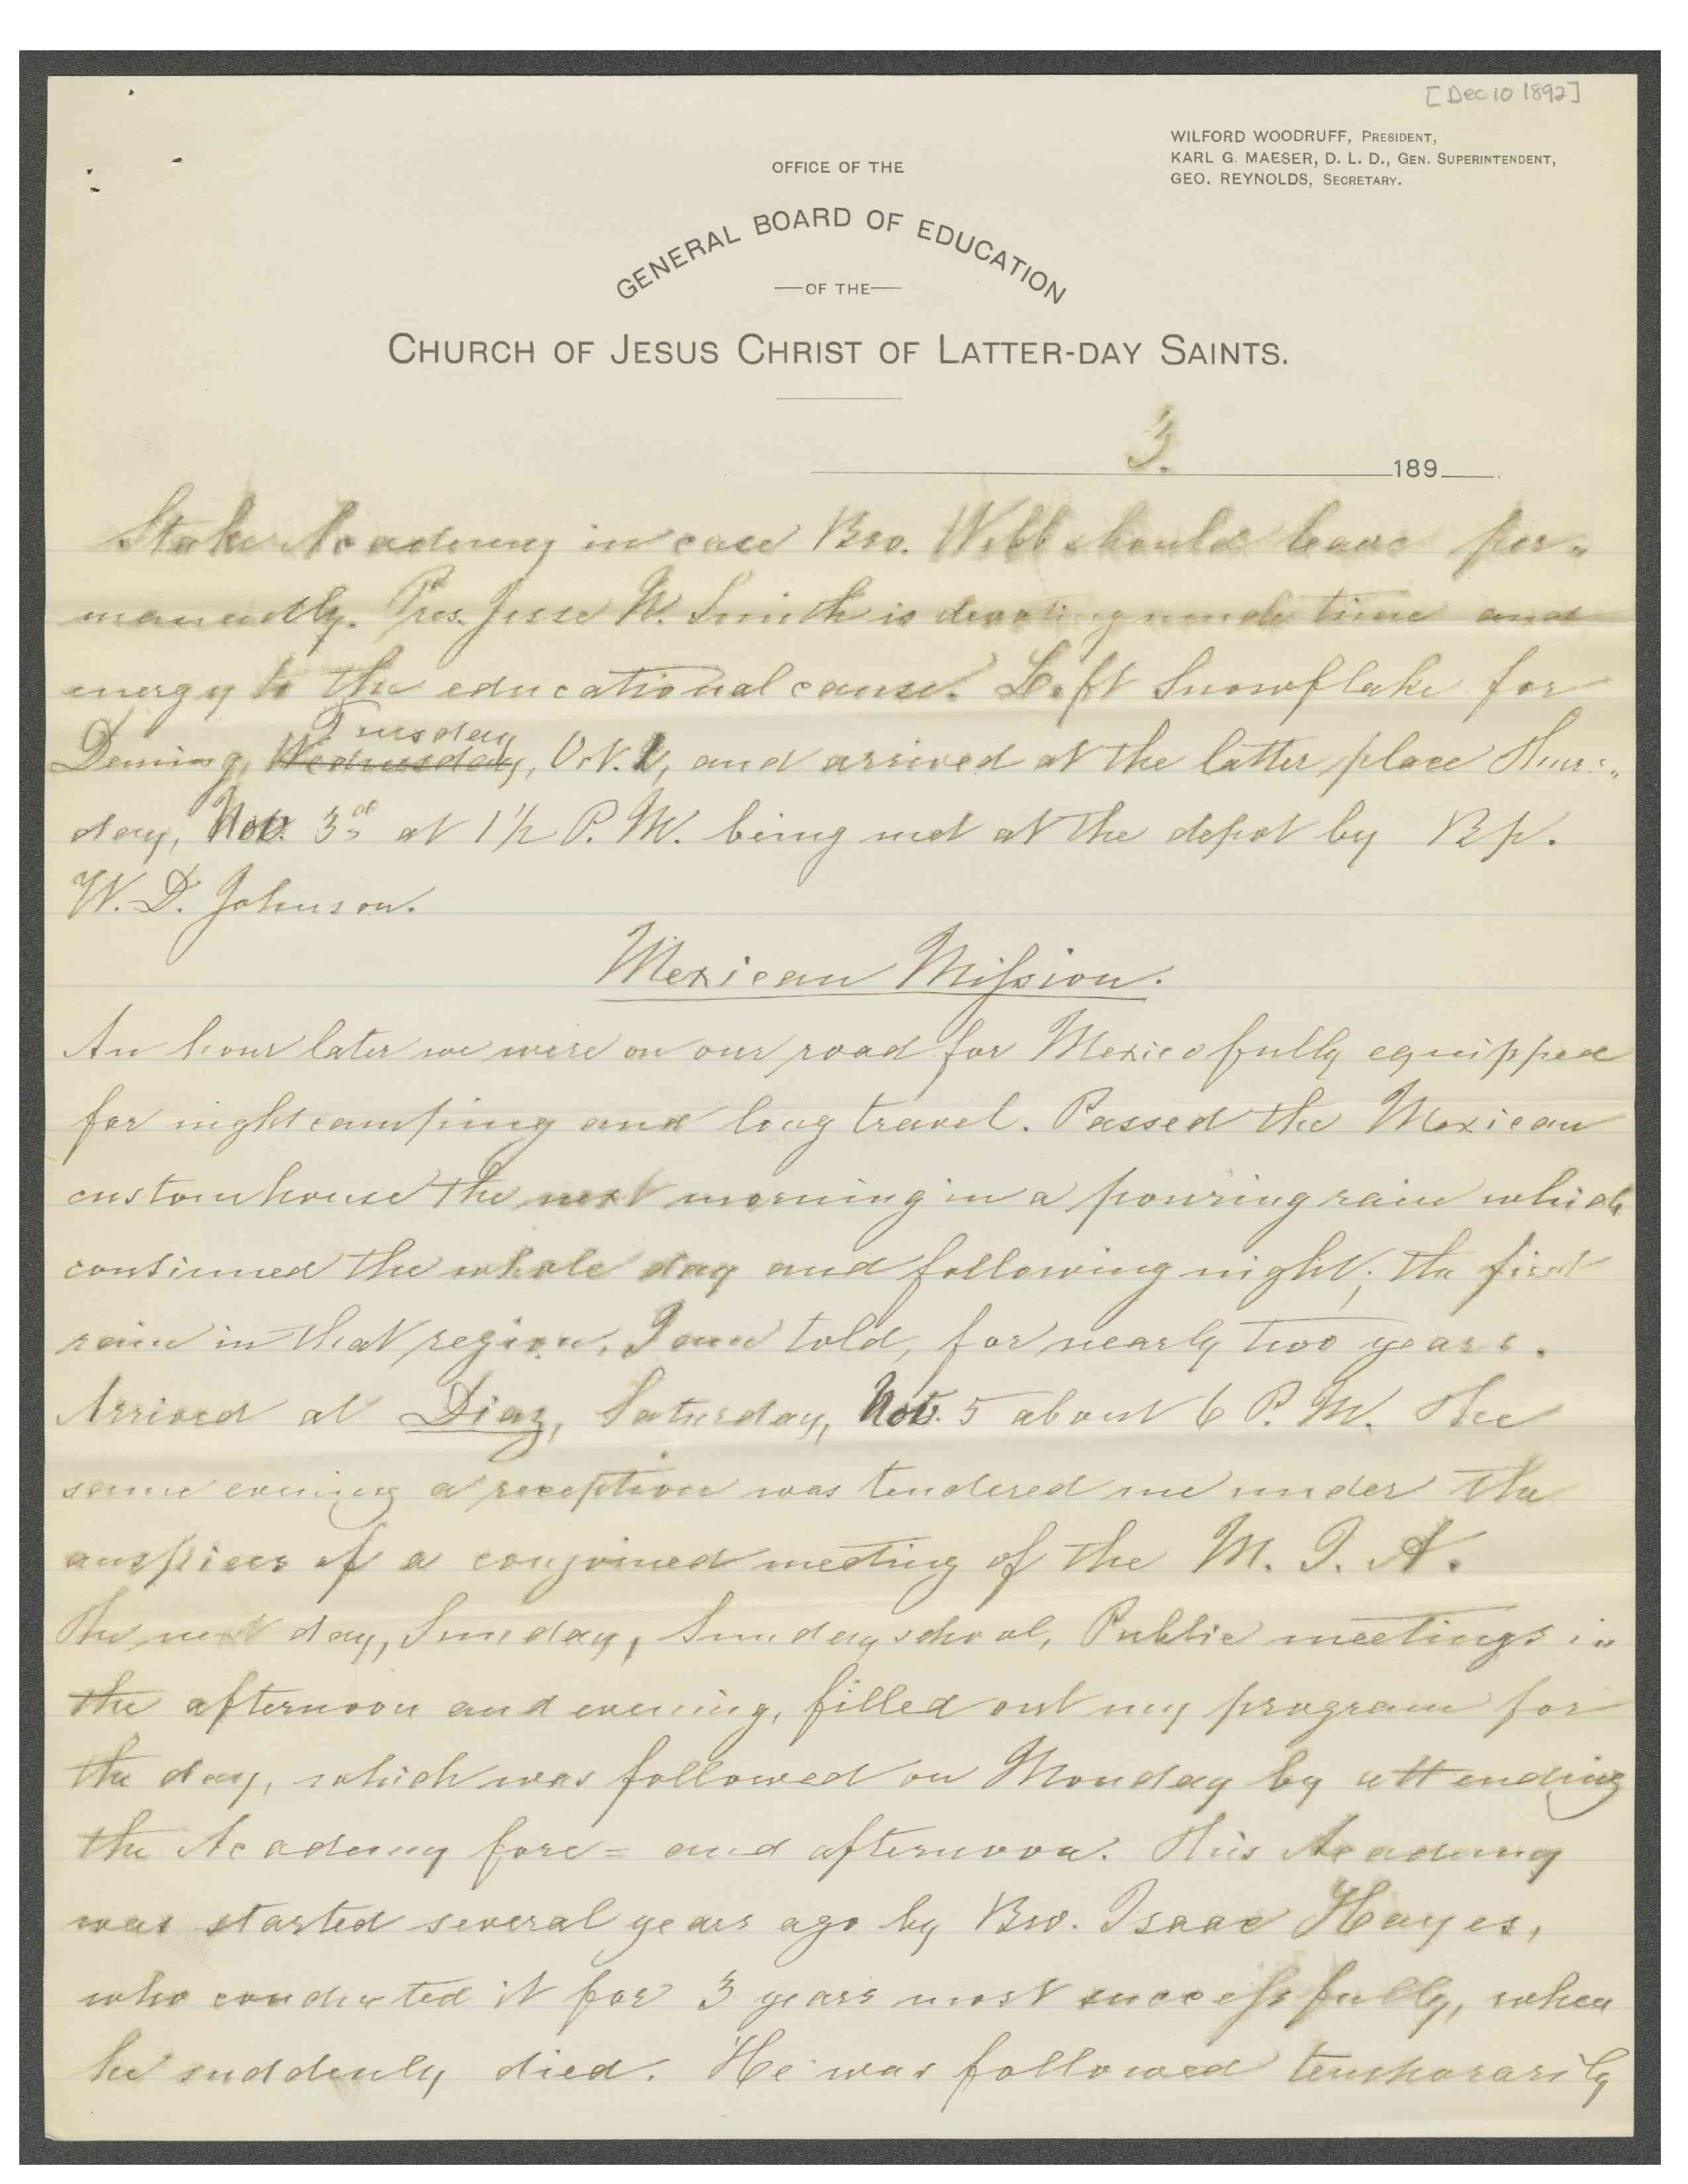 [Dec 10 1892]
WILFORD WOODRUFF, PRESIDENT,
KARL G. MAESER, D. L. D., GEN. SUPERINTENDENT,
GEO. REYNOLDS, SECRETARY.
OFFICE OF THE
GENERAL BOARD OF EDUCATION
—OF THE—
CHURCH OF JESUS CHRIST OF LATTER-DAY SAINTS.
3.
189
Stake Academy in case Bro. Webb should leave per-
manently. Pres. Jesse N. Smith is devoting much time and
energy to the educational cause. Left Snowflake for
Tuesday
Deming, Wednesday, Oct. 1, and arrived at the latter place Thurs-
day, Nov. 3d at 1 1/2 P. M. being met at the depot by Bp.
W. D. Johnson.
Mexican Mission.
An hour later we were on our road for Mexico fully equipped
for night camping and long travel. Passed the Mexican
customhouse the next morning in a pouring rain which
continued the whole day and following night; the first
rain in that region, I am told, for nearly two years.
Arrived at Diaz, Saturday, Nov. 5 about 6 P. M. The
same evening a reception was tendered me under the
auspices of a conjoined meeting of the M. I. A.
The next day, Sunday, Sunday school, Public meetings in
the afternoon and evening, filled out my program for
the day, which was followed on Monday by attending
the Academy fore= and afternoon. This Academy
was started several years ago by Bro. Isaac Hayes,
who conducted it for 3 years most successfully, when
he suddenly died. He was followed temporarily